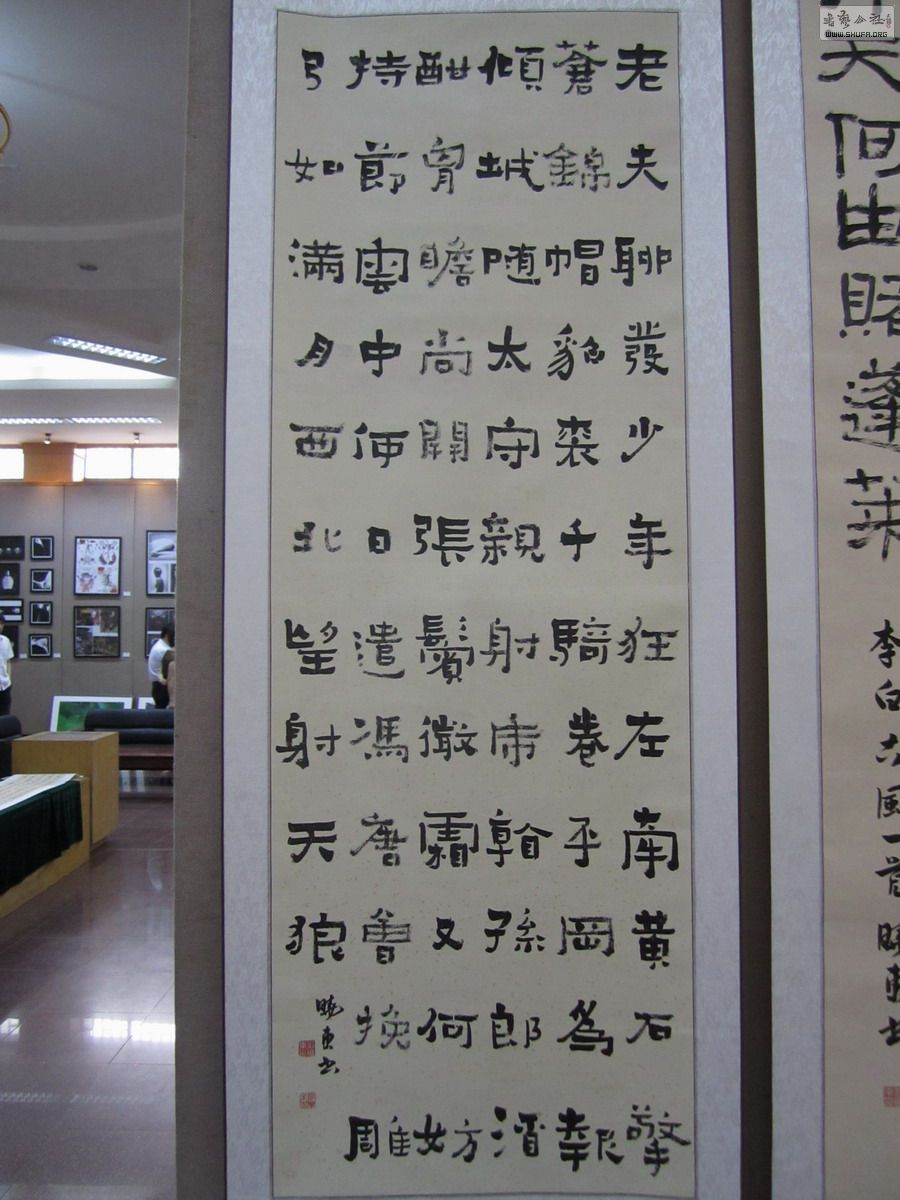 書藝公社
WWW.SHUFA.ORG
天何由睹蓬萊
李白古風一首曉東书
老夫聊發少年狂左牽黃右擎
蒼錦帽貂裘千騎卷平岡爲報
傾城隨太守親射虎看孫郎酒
酣胷膽尚開張鬢微霜又何妨
持節雲中何日遣馮唐會挽雕
弓如滿月西北望射天狼
曉東书